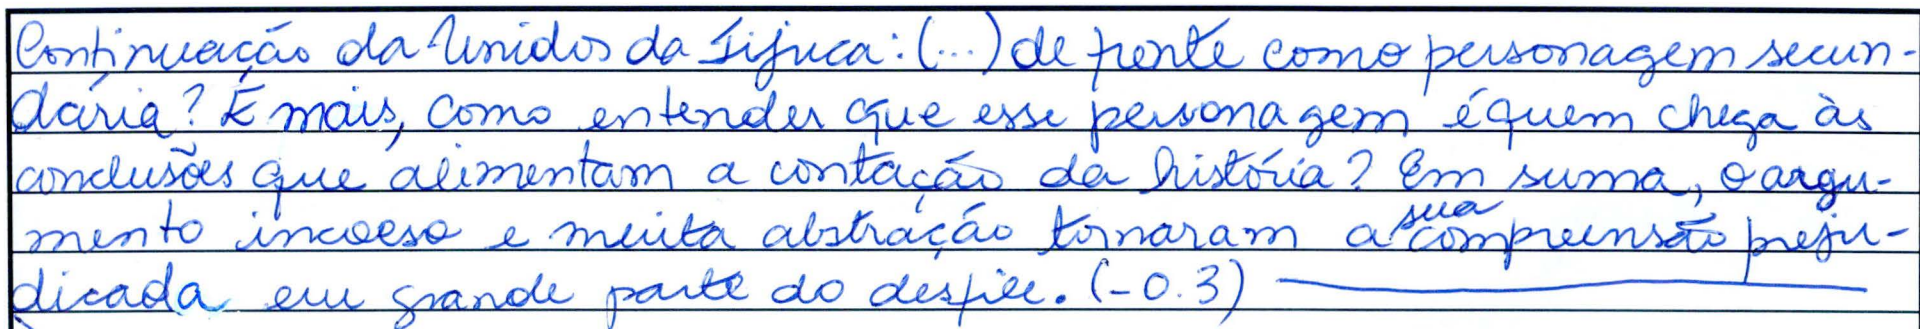 Continuação da Unidos da Tijuca: (...) de frente como personagem secun-
dária? E mais, como entender que esse personagem é quem chega às
conclusões que alimentam a contação da história? Em suma, o argu-
mento incoeso e muita abstração tornaram a sua compreensão preju-
dicada em grande parte do desfile. (-0.3)